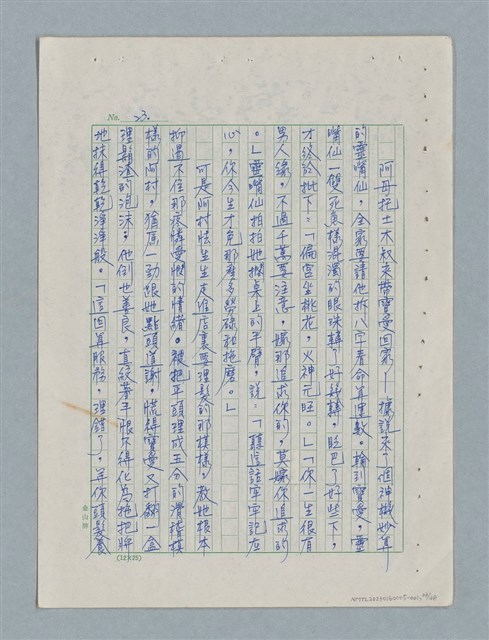 No. 23.
阿母托土木叔來帶寶愛回家——據說來了個神機妙算
的靈嘴仙,全家要請他拆八字看命算運數。輪到寶愛,靈
嘴仙一雙死魚樣混濁的眼珠轉了好幾轉,眨巴了好些下,
才終於批下:「偏宮坐桃花,火神元旺。」「你一生很有
男人緣,不過千萬要注意,嫁那追求你的,莫嫁你追求的
。」靈嘴仙拍拍她擱桌上的手臂,說:「聽這話牢牢記在
心,你今生才免那麼多勞碌和拖磨。」
可是阿村怯生生走進店裏要理髮的那模樣,教她根本
抑遏不住那疼憐愛憫的情緒。被把平頭理成五分的滑稽模
樣的阿村,猶焦一勁跟她點頭道謝,慌得寶愛又打翻一盒
理鬍渣的泡沫。他倒也善良,直絞著手恨不得化為拖把將
地抹得乾乾淨淨般。「這回算服務,理錯了,等你頭髮養
(12×25)